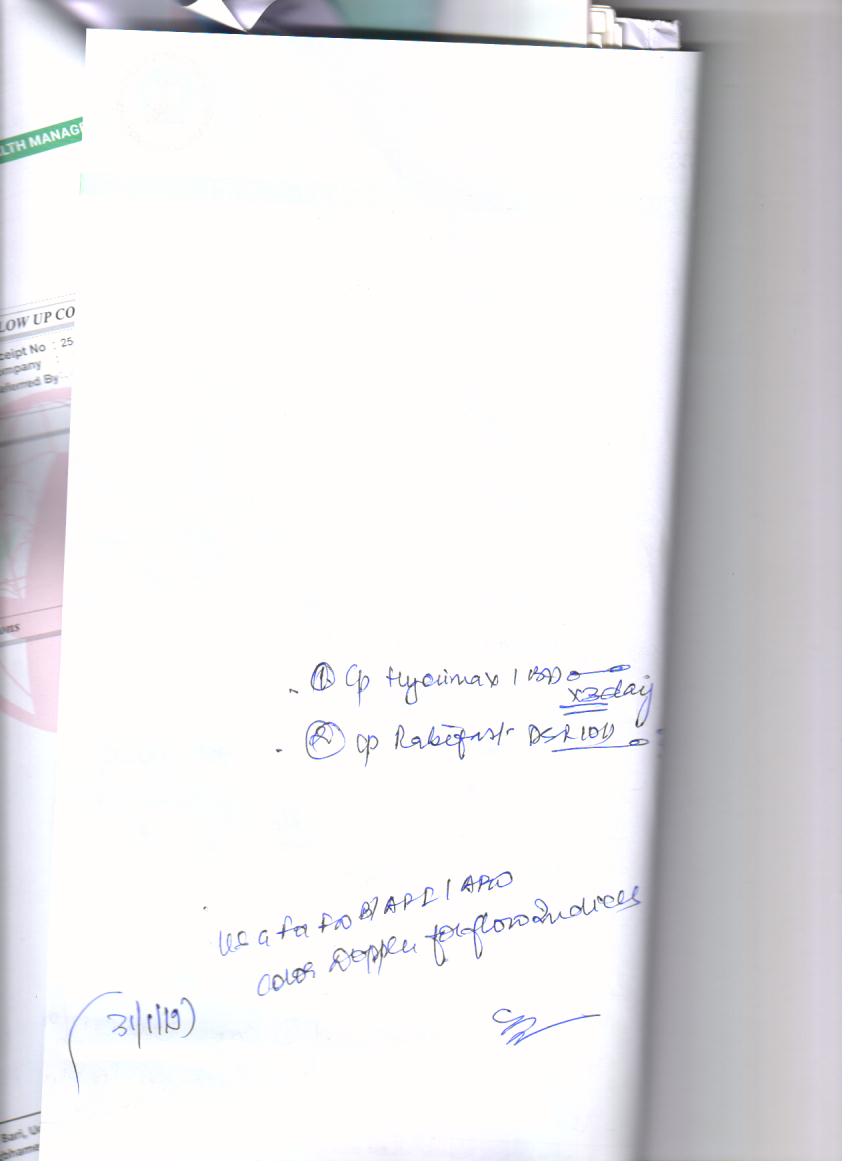 LTH MANAGE
LOW UP CO
ceipt No : 25
ompany :
eferred By :
ons
① Cp Hycimax 1 BD
x3day
② Cp Rabifast DSR 1OD
USG for FWB/AFI/
Color Doppler for flow Indices
(31/1/19)
Bari, U